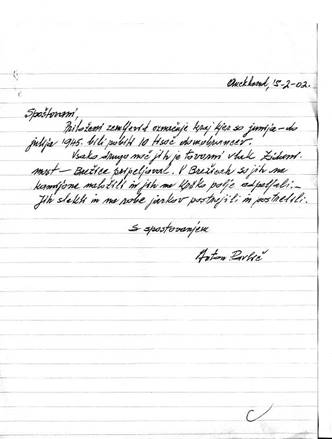 Auckland, 5-2-02.
Spoštovani,
Priloženi zemljevid označuje kraj kjer so junija – do
julija 1945. bili pobiti 10 tisoč domobrancev.
Vsako drugo noč jih je tovorni vlak Zidani
most – Brežice pripeljal. V Brežicah so jih na
kamijone naložili in jih na Krško polje odpeljali –
Jih slekli in na robe jarkov postrojili in postrelili.
S spoštovanjem
Anton